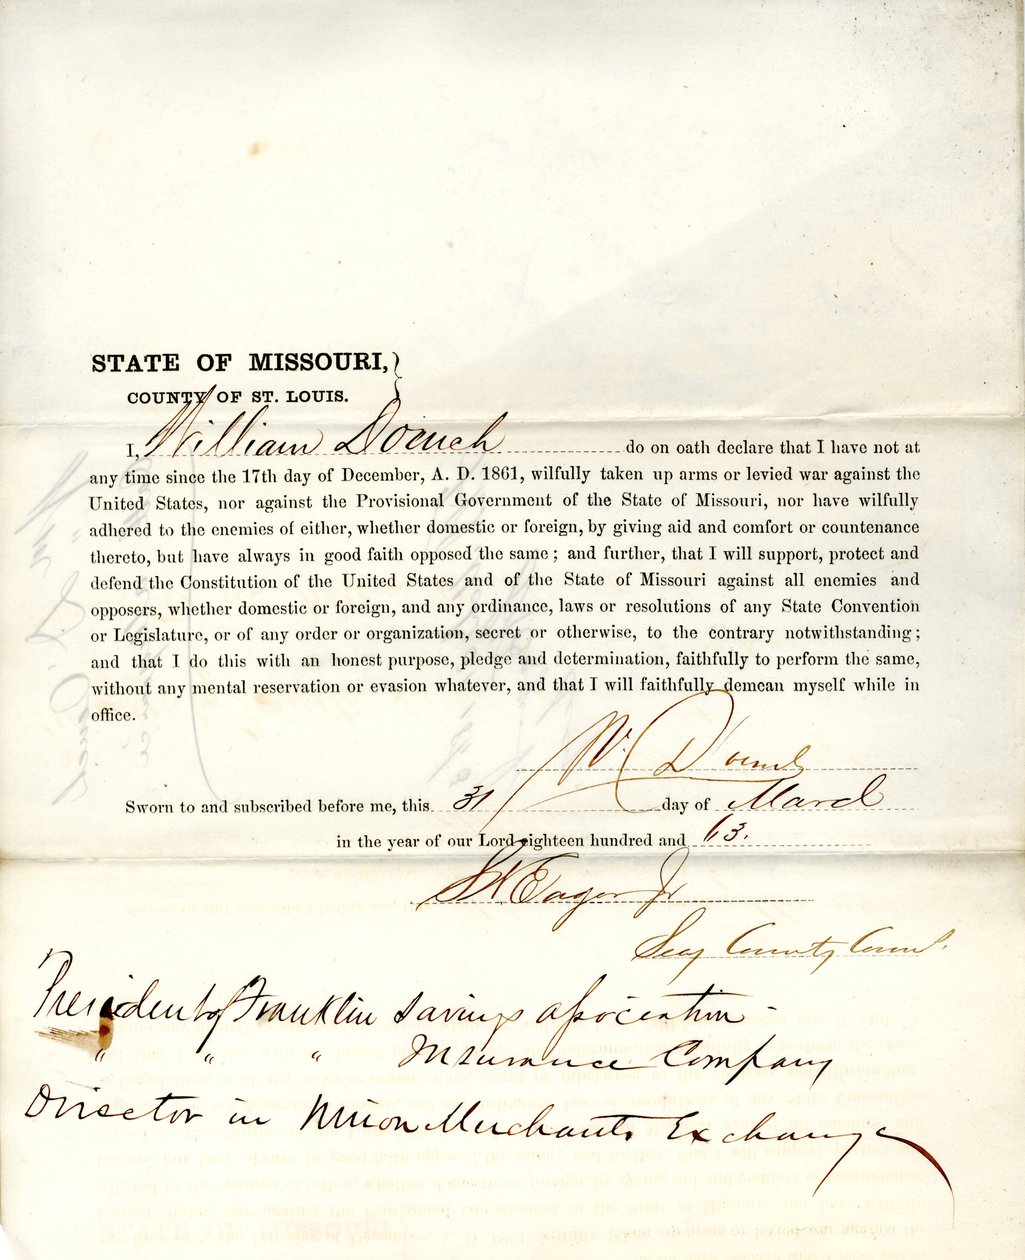 STATE OF MISSOURI,
COUNTY OF ST. LOUIS.
I, William Doench do on oath declare that I have not at
any time since the 17th day of December, A. D. 1861, wilfully taken up arms or levied war against the
United States, nor against the Provisional Government of the State of Missouri, nor have wilfully
adhered to the enemies of either, whether domestic or foreign, by giving aid and comfort or countenance
thereto, but have always in good faith opposed the same; and further, that I will support, protect and
defend the Constitution of the United States and of the State of Missouri against all enemies and
opposers, whether domestic or foreign, and any ordinance, laws or resolutions of any State Convention
or Legislature, or of any order or organization, secret or otherwise, to the contrary notwithstanding;
and that I do this with an honest purpose, pledge and determination, faithfully to perform the same,
without any mental reservation or evasion whatever, and that I will faithfully demean myself while in
office.
W. Doench
Sworn to and subscribed before me, this 31 day of March
in the year of our Lord eighteen hundred and 63.
Eager Jr
Secy County Court
President of Franklin Savings association -
" " " Insurance Company
Director in Union Merchants Exchange